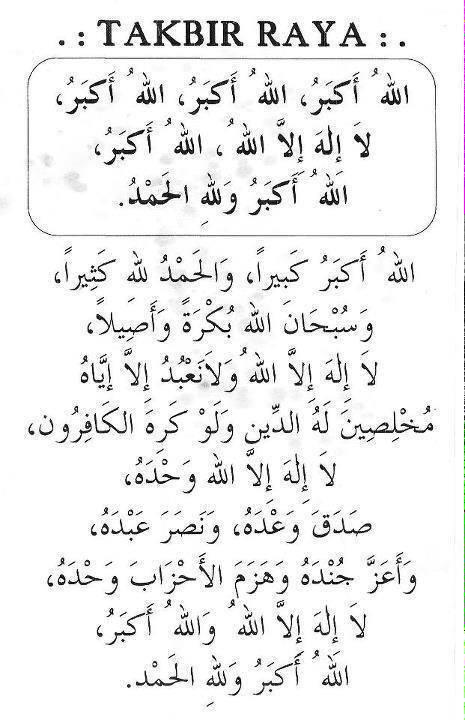 . : TAKBIR RAYA : .
اللهُ أَكبَرُ، اللهُ أَكبَرُ، اللهُ أَكبَرُ،
لاَ إِلهَ إِلاَّ اللهُ، اللهُ أَكبَرُ،
اَللهُ أَكبَرُ وَللهِ الحَمْدُ.
اللهُ أَكبَرُ كَبيراً، وَالحَمْدُ للهِ كَثِيراً،
وَسُبْحَانَ الله بُكْرَةً وَأَصِيلاً،
لاَ إِلهَ إِلاَّ اللهُ وَلاَنَعْبُدُ إِلاَّ إِيَّاهُ
مُخْلِصِينَ لَهُ الدِّين وَلَوْ كَرِهَ الكَافِرُون،
لاَ إِلهَ إِلاَّ الله وَحْدَهُ،
صَدَقَ وَعْدَهُ، وَنَصَرَ عَبْدَهُ،
وَأَعَزَّ جُنْدَهُ وَهَزَمَ الأَحْزَابَ وَحْدَهُ،
لاَ إِلهَ إِلاَّ اللهُ وَاللهُ أَكبَرُ،
اللهُ أَكبَرُ وَللهِ الحَمْد.